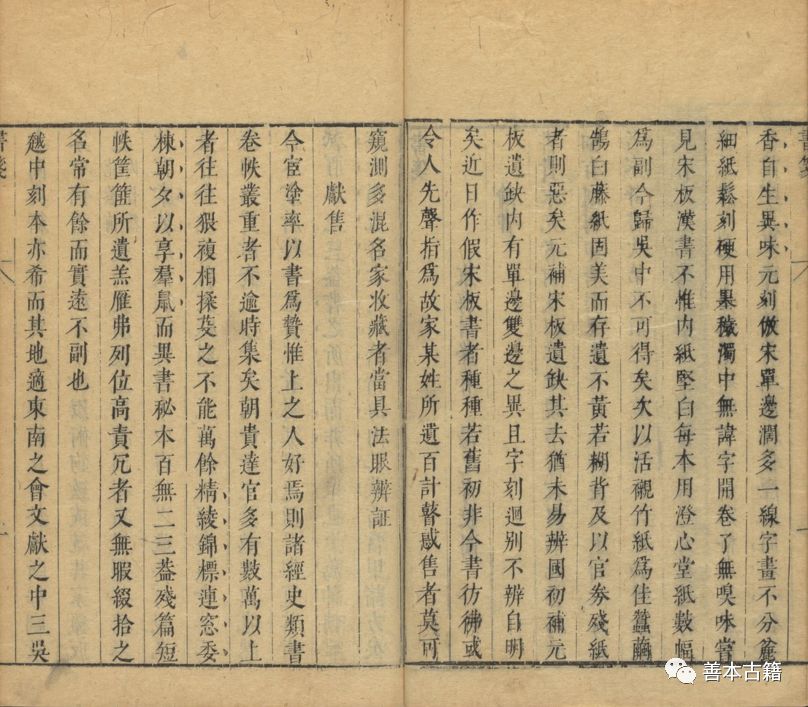 書箋
香自生異味元刻倣宋單邊濶多一線字畫不分麄
細紙鬆刻硬用墨穢濁中無諱字開卷了無嗅味嘗
見宋板漢書不惟内紙堅白每本用澄心堂紙數幅
爲副今歸吳中不可得矣次以活襯竹紙爲佳蠶繭
鵠白藤紙固美而存遺不黄若糊背及以官券殘紙
者則惡矣元補宋板遺缺其去猶未易辨國初補元
板遺缺内有單邊雙邊之異且字刻迥别不辨自明
矣近日作假宋板書者種種若舊初非今書彷彿或
令人先聲指爲故家某姓所遺百計瞽惑售者莫可
窺測多混名家收藏者當具法眼辨証
獻售
今宦塗率以書爲贄惟上之人好焉則諸經史類書
卷帙叢重者不逾時集矣朝貴達官多有數萬以上
者往往猥複相揉芟之不能萬餘精綾錦標連窓委
棟朝夕以享羣鼠而異書秘本百無二三葢殘篇短
帙筐篚所遺羔雁弗列位高責冗者又無暇綴拾之
名常有餘而實遠不副也
越中刻本亦希而其地適東南之會文獻之中三吳
書箋
善本古籍